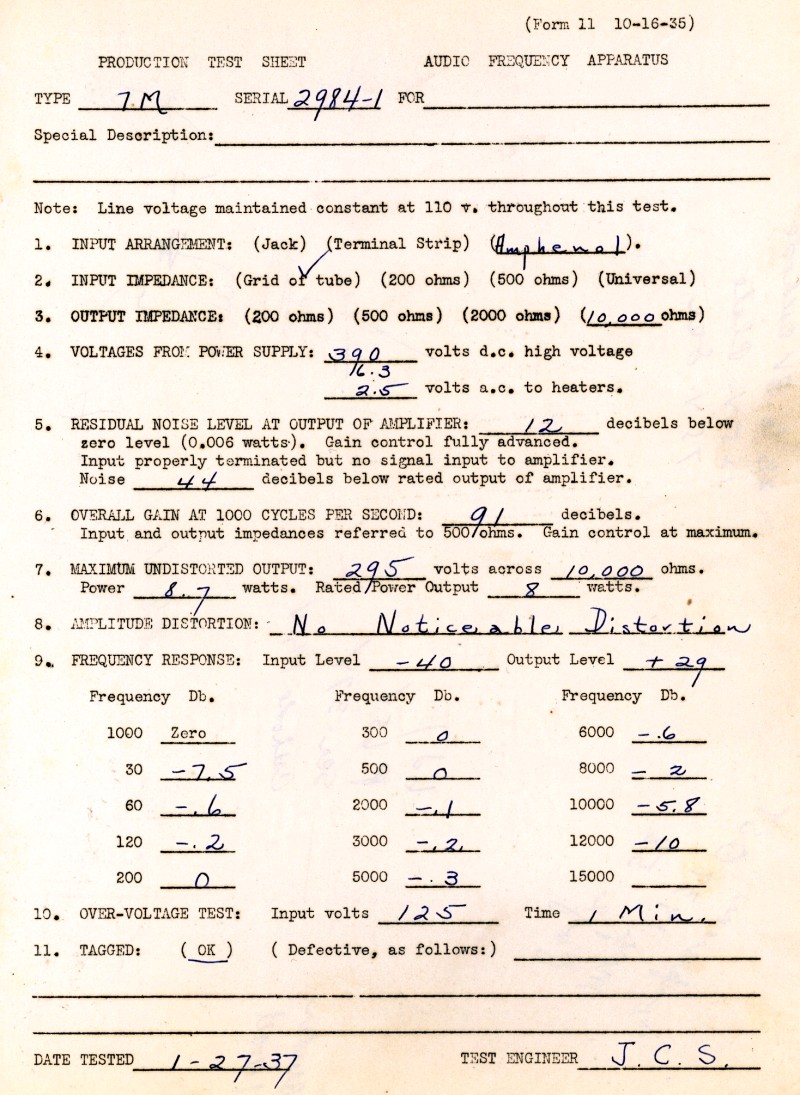 (Form 11 10-16-35)
PRODUCTION TEST SHEET AUDIO FREQUENCY APPARATUS
TYPE 7M SERIAL 2984-1 FOR
Special Description:
Note: Line voltage maintained constant at 110 v. throughout this test.
1. INPUT ARRANGEMENT: (Jack) (Terminal Strip) (Amphenol).
2. INPUT IMPEDANCE: (Grid of tube) (200 ohms) (500 ohms) (Universal)
3. OUTPUT IMPEDANCE: (200 ohms) (500 ohms) (2000 ohms) (10,000 ohms)
4. VOLTAGES FROM POWER SUPPLY: 390 volts d.c. high voltage
6.3
2.5 volts a.c. to heaters.
5. RESIDUAL NOISE LEVEL AT OUTPUT OF AMPLIFIER: 12 decibels below
zero level (0.006 watts). Gain control fully advanced.
Input properly terminated but no signal input to amplifier.
Noise 44 decibels below rated output of amplifier.
6. OVERALL GAIN AT 1000 CYCLES PER SECOND: 91 decibels.
Input and output impedances referred to 500 ohms. Gain control at maximum.
7. MAXIMUM UNDISTORTED OUTPUT: 295 volts across 10,000 ohms.
Power 8.7 watts. Rated Power Output 8 watts.
8. AMPLITUDE DISTORTION: No Noticeable Distortion
9. FREQUENCY RESPONSE: Input Level -40 Output Level +29
Frequency Db. Frequency Db. Frequency Db.
1000 Zero 300 0 6000 -.6
30 -7.5 500 0 8000 -2
60 -.6 2000 -.1 10000 -5.8
120 -.2 3000 -.2 12000 -10
200 0 5000 -.3 15000
10. OVER-VOLTAGE TEST: Input volts 125 Time 1 Min.
11. TAGGED: ( OK ) ( Defective, as follows:)
DATE TESTED 1-27-37 TEST ENGINEER J.C.S.